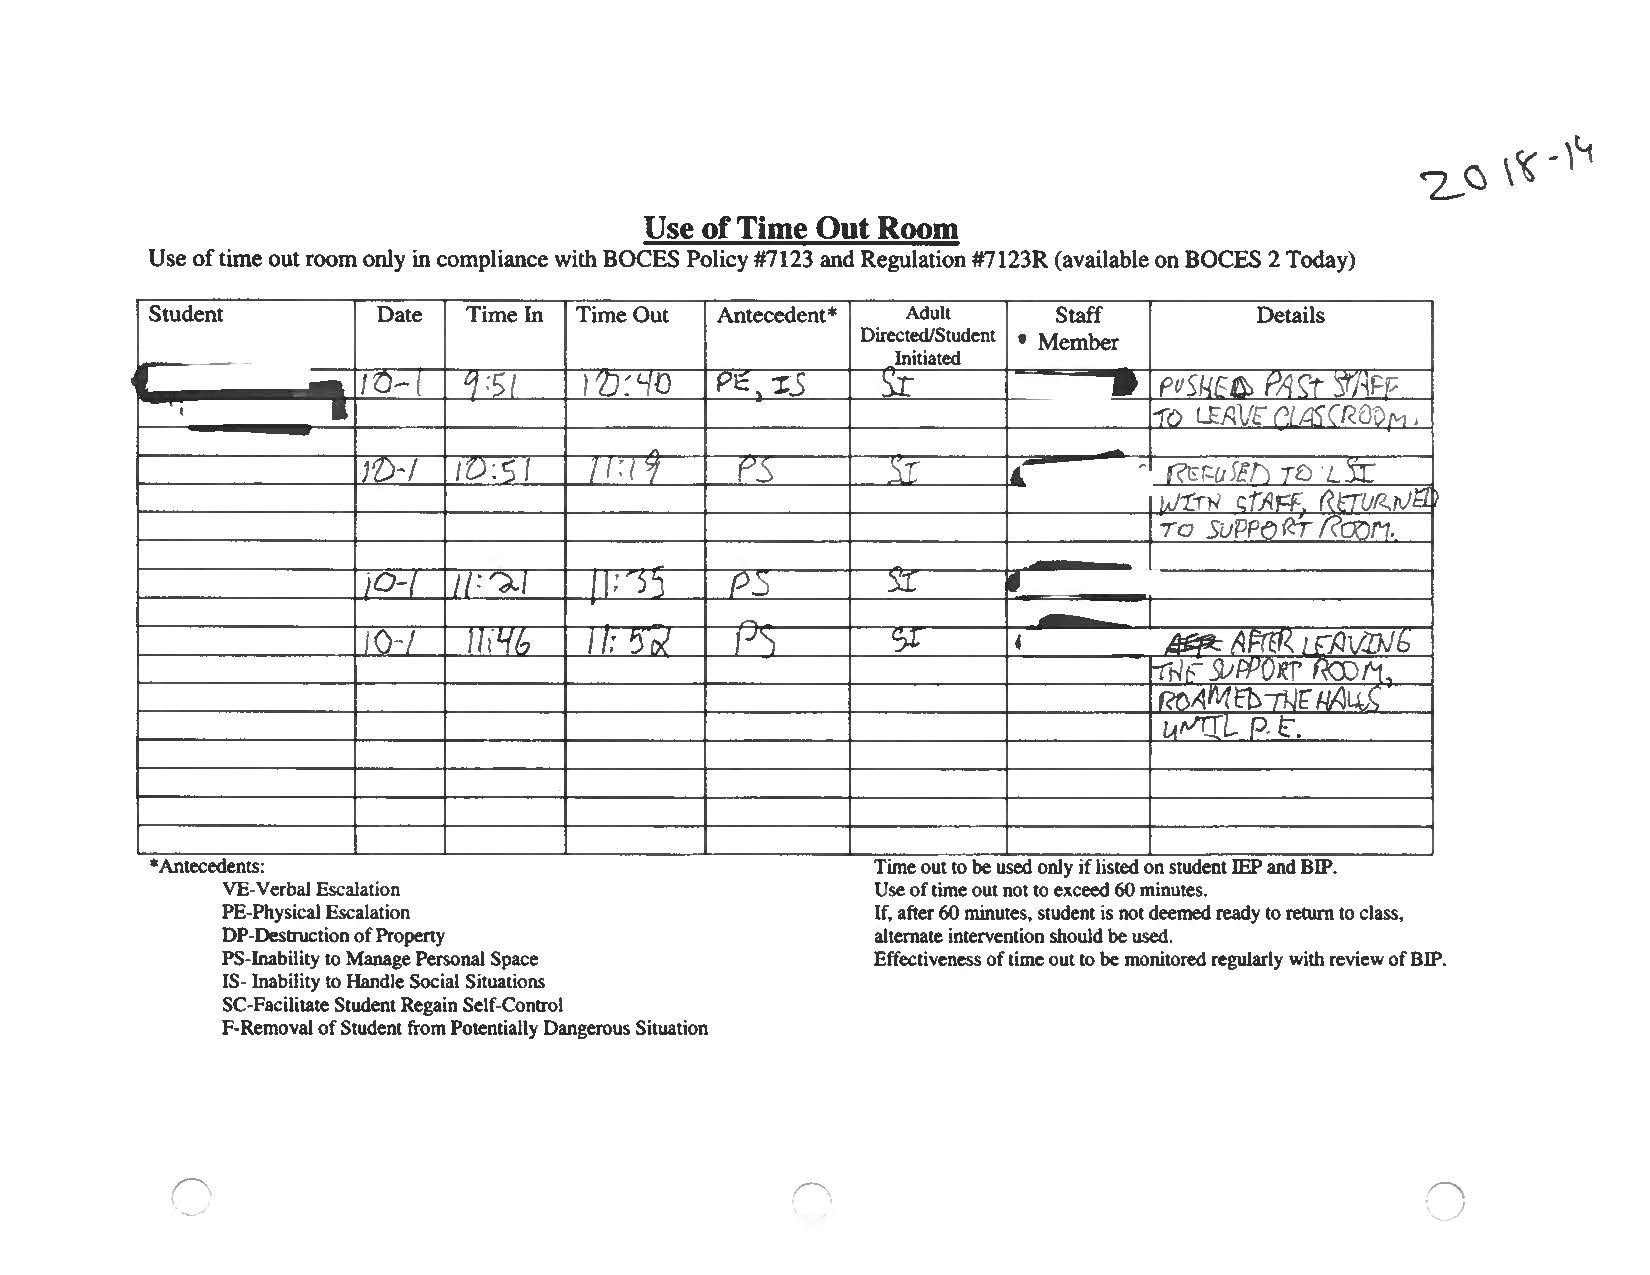 2018-19
Use of Time Out Room
Use of time out room only in compliance with BOCES Policy #7123 and Regulation #7123R (available on BOCES 2 Today)
Student Date Time In Time Out Antecedent* Adult Directed/Student Initiated Staff Member Details
10-1 9:51 10:40 PE, IS SI PUSHED PAST STAFF
TO LEAVE CLASSROOM.
10-1 10:51 11:19 PS SI REFUSED TO LSI
WITH STAFF, RETURNED
TO SUPPORT ROOM.
10-1 11:21 11:35 PS SI
10-1 11:46 11:52 PS SI AFTER LEAVING
THE SUPPORT ROOM,
ROAMED THE HALLS
UNTIL P.E.
*Antecedents:
VE-Verbal Escalation
PE-Physical Escalation
DP-Destruction of Property
PS-Inability to Manage Personal Space
IS- Inability to Handle Social Situations
SC-Facilitate Student Regain Self-Control
F-Removal of Student from Potentially Dangerous Situation
Time out to be used only if listed on student IEP and BIP.
Use of time out not to exceed 60 minutes.
If, after 60 minutes, student is not deemed ready to return to class,
alternate intervention should be used.
Effectiveness of time out to be monitored regularly with review of BIP.